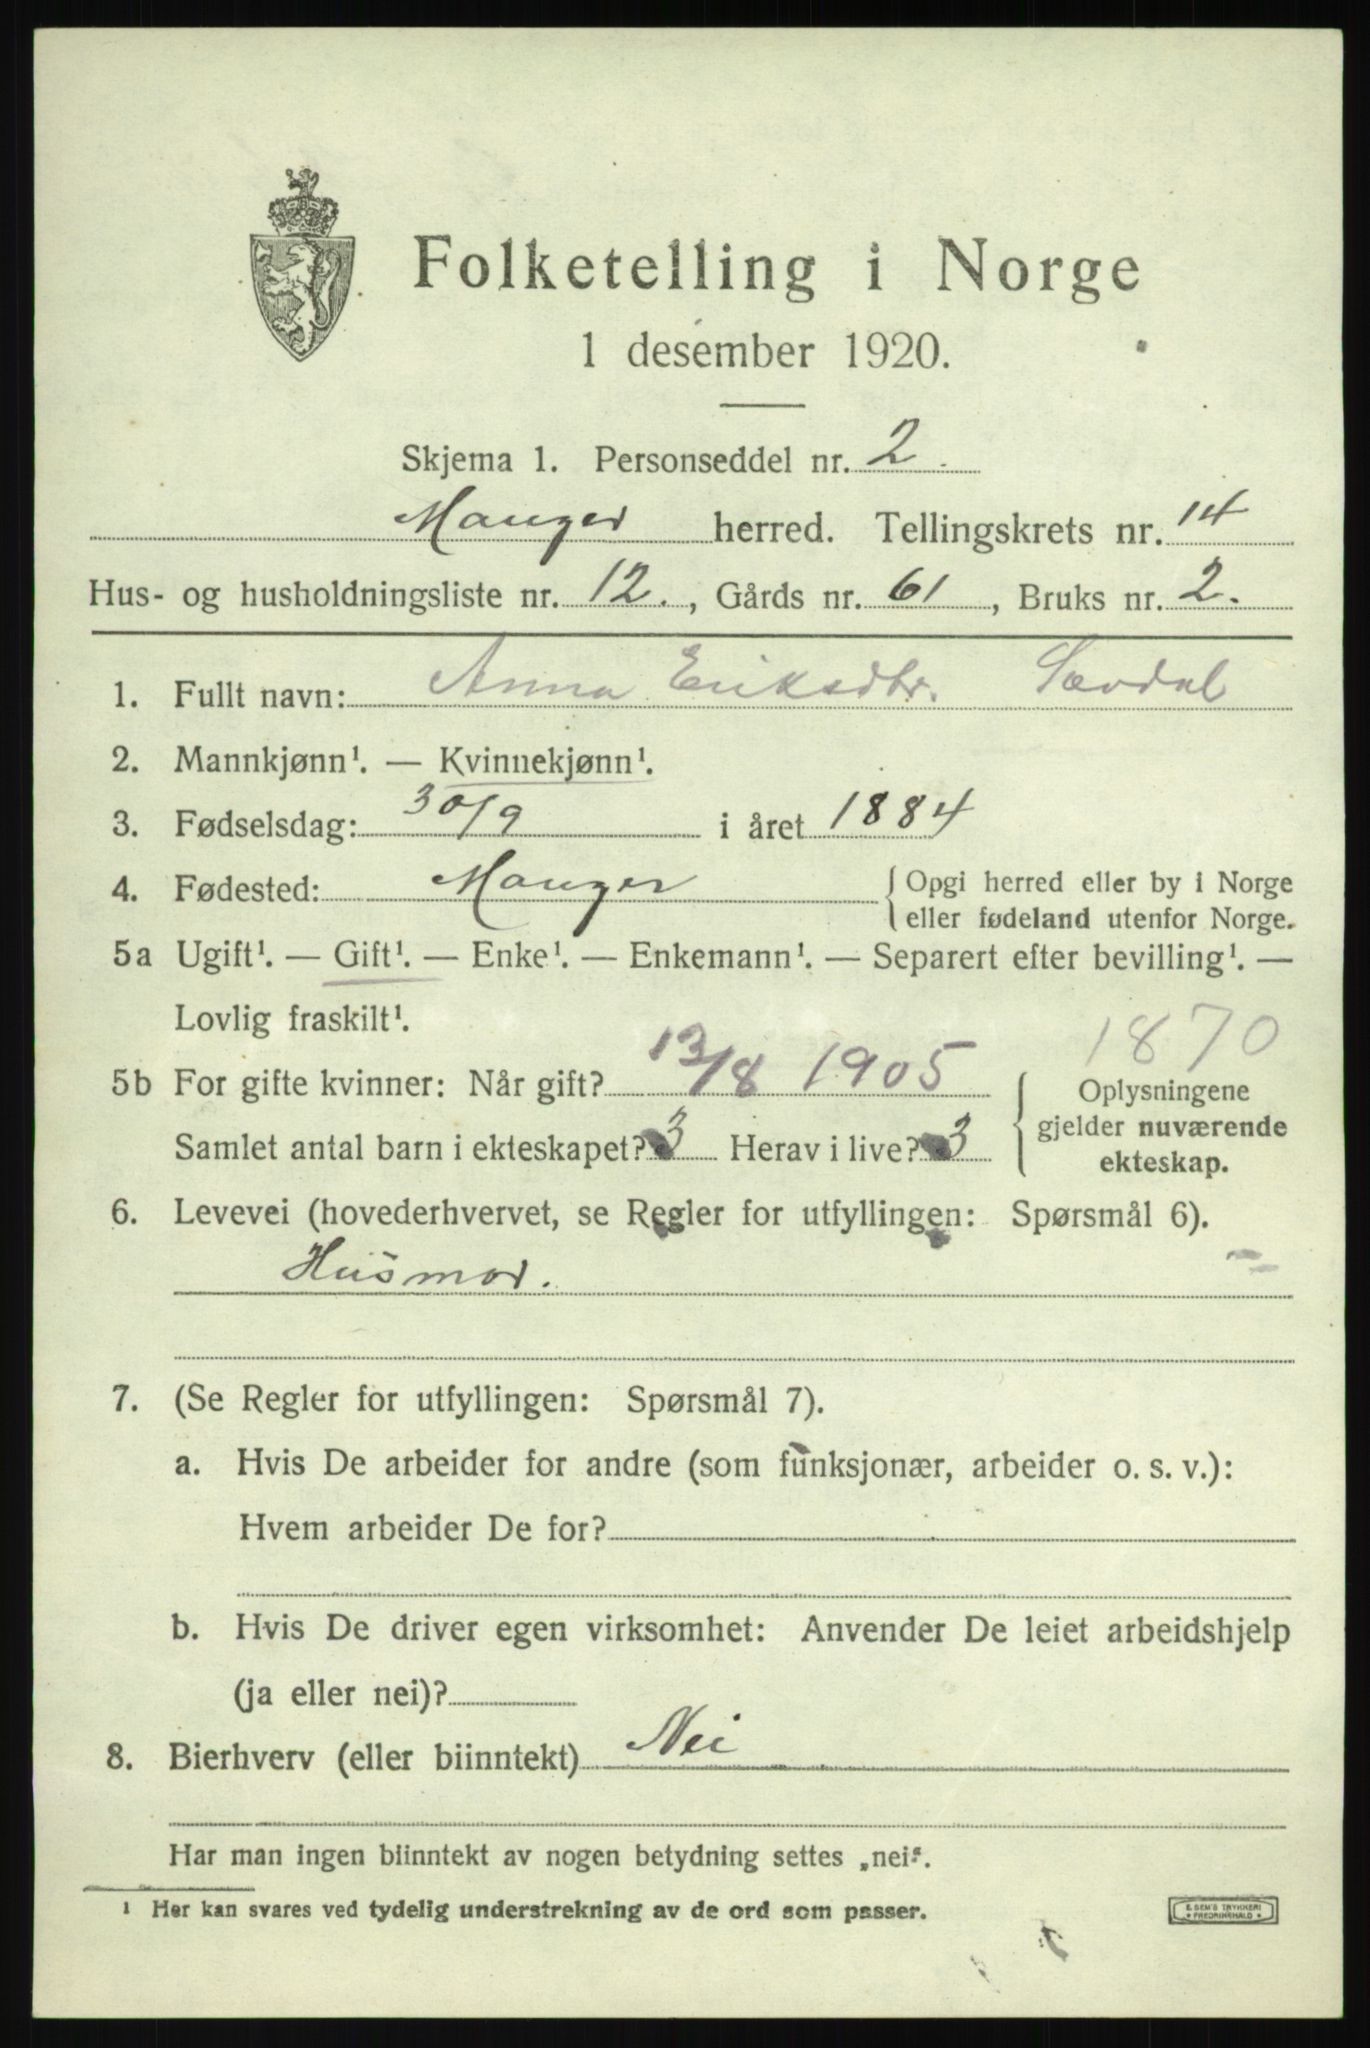 Folketelling i Norge
1 desember 1920.
Skjema 1. Personseddel nr. 2.
Manger herred. Tellingskrets nr. 14
Hus- og husholdningsliste nr. 12., Gårds nr. 61, Bruks nr. 2.
1. Fullt navn: Anna Eriksdtr. Sævdal
2. Mannkjønn¹. — Kvinnekjønn¹.
3. Fødselsdag: 30/9 i året 1884
4. Fødested: Manger {Opgi herred eller by i Norge
eller fødeland utenfor Norge.
5a Ugift¹. — Gift¹. — Enke¹. — Enkemann¹. — Separert efter bevilling¹. —
Lovlig fraskilt¹.
1870
5b For gifte kvinner: Når gift? 13/8 1905
Samlet antal barn i ekteskapet? 3 Herav i live? 3
{Oplysningene
gjelder nuværende
ekteskap.
6. Levevei (hovederhvervet, se Regler for utfyllingen: Spørsmål 6).
Husmor.
7. (Se Regler for utfyllingen: Spørsmål 7).
a. Hvis De arbeider for andre (som funksjonær, arbeider o. s. v.):
Hvem arbeider De for?
b. Hvis De driver egen virksomhet: Anvender De leiet arbeidshjelp
(ja eller nei)?
8. Bierhverv (eller biinntekt) Nei
Har man ingen biinntekt av nogen betydning settes „nei“.
¹ Her kan svares ved tydelig understrekning av de ord som passer.
E. SEM'S TRYKKERI
* FREDRIKSHALD *